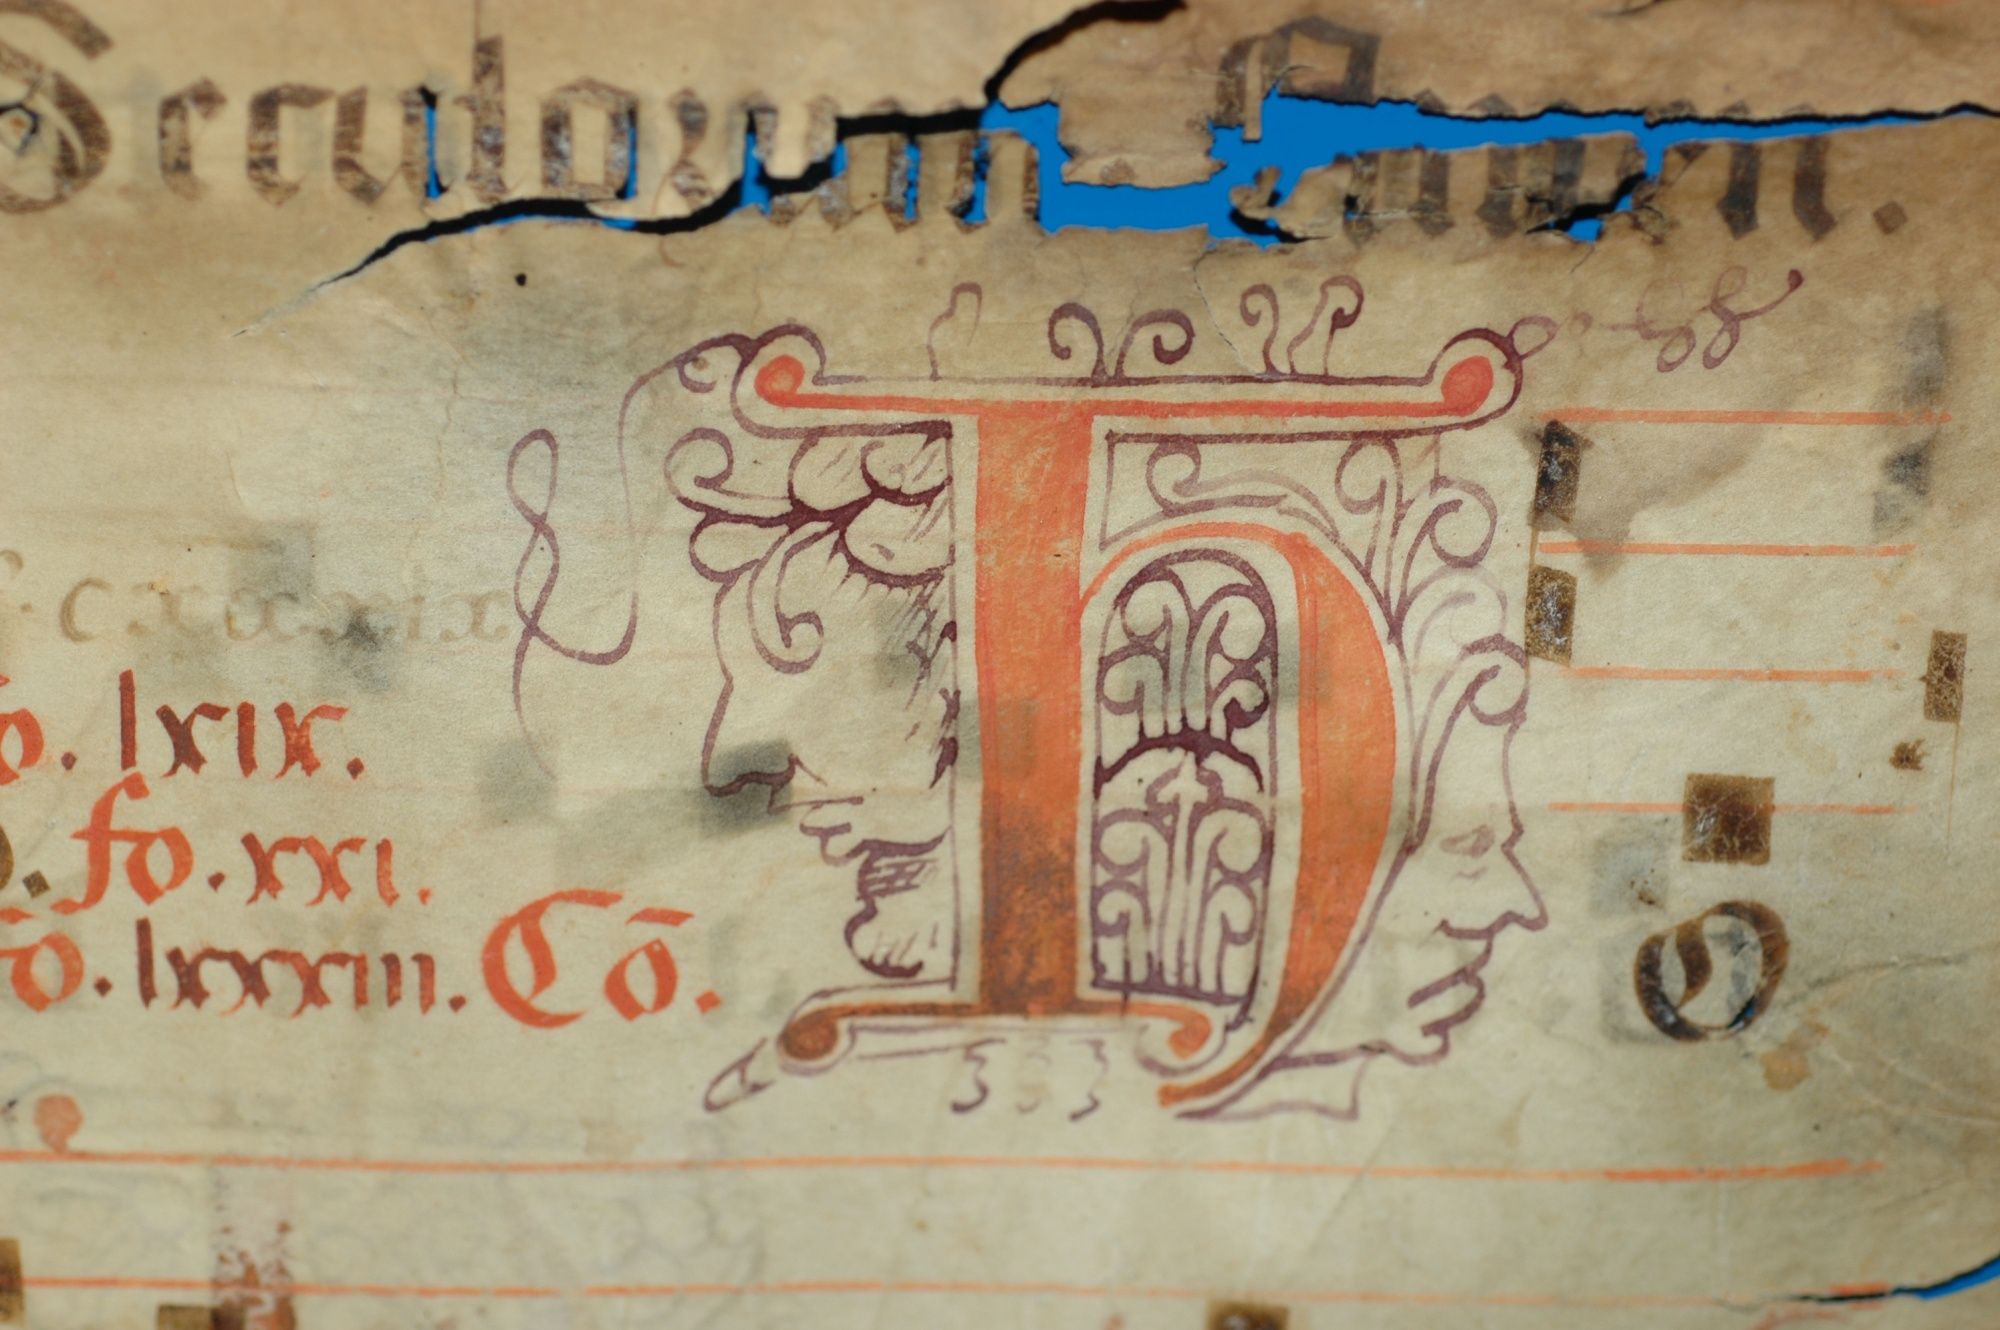 Seculorum Amen.
cxxxix
o. lxix.
. fo. xxi.
o. lxxxiii. Cō.
H
o